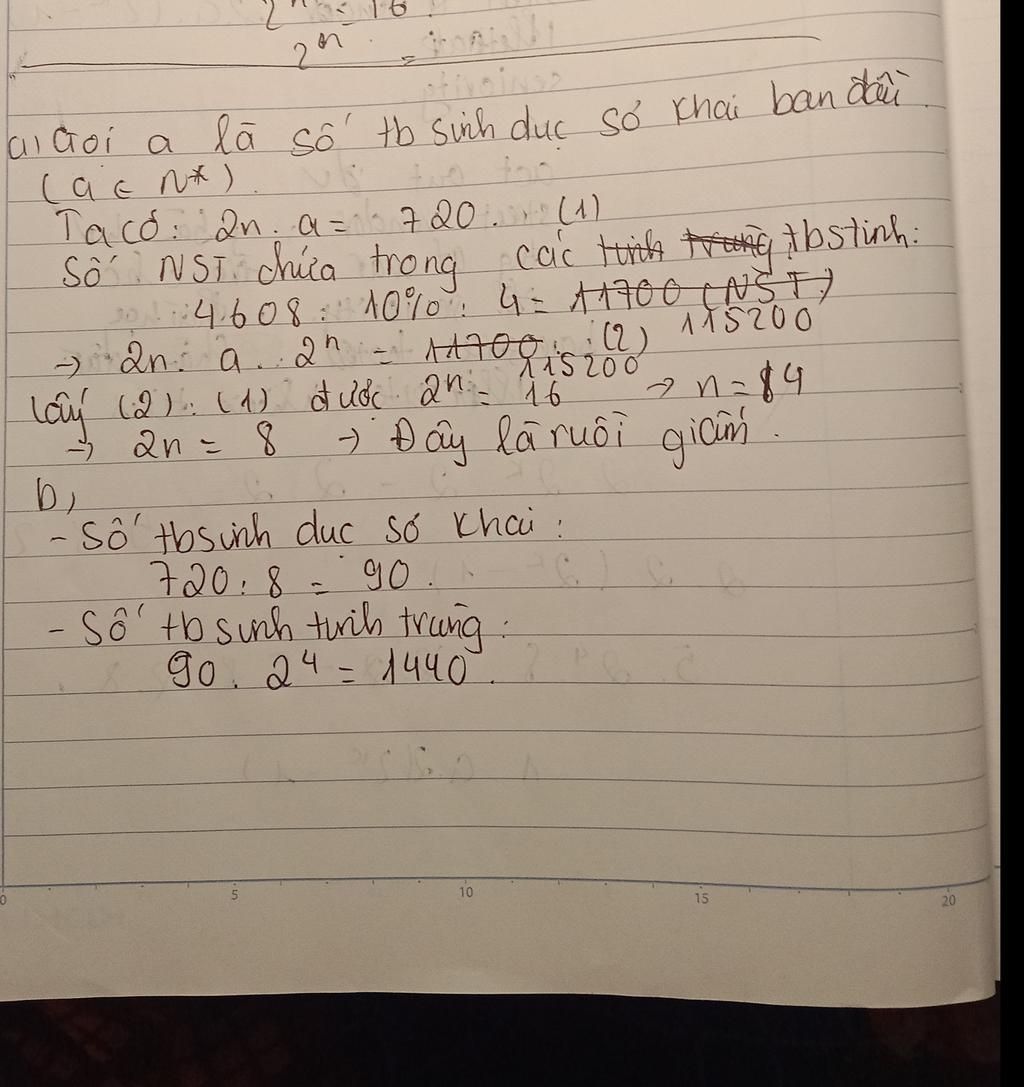 2ⁿ = 16
2ⁿ =
a) Gọi a là số tb sinh dục sơ khai ban đầu.
(a ∈ N*).
Ta có: 2n. a = 720. (1)
Số NST chứa trong các tinh trùng tbstinh:
4608: 10%: 4 = 11700 (NST)
115200
→ 2n. a. 2ⁿ = 11700. (2)
115200
Lấy (2): (1) được 2ⁿ = 16 → n = 4
→ 2n = 8 → Đây là ruồi giấm.
b)
- Số tb sinh dục sơ khai:
720: 8 = 90.
- Số tb sinh tinh trùng:
90. 2⁴ = 1440.
0 5 10 15 20